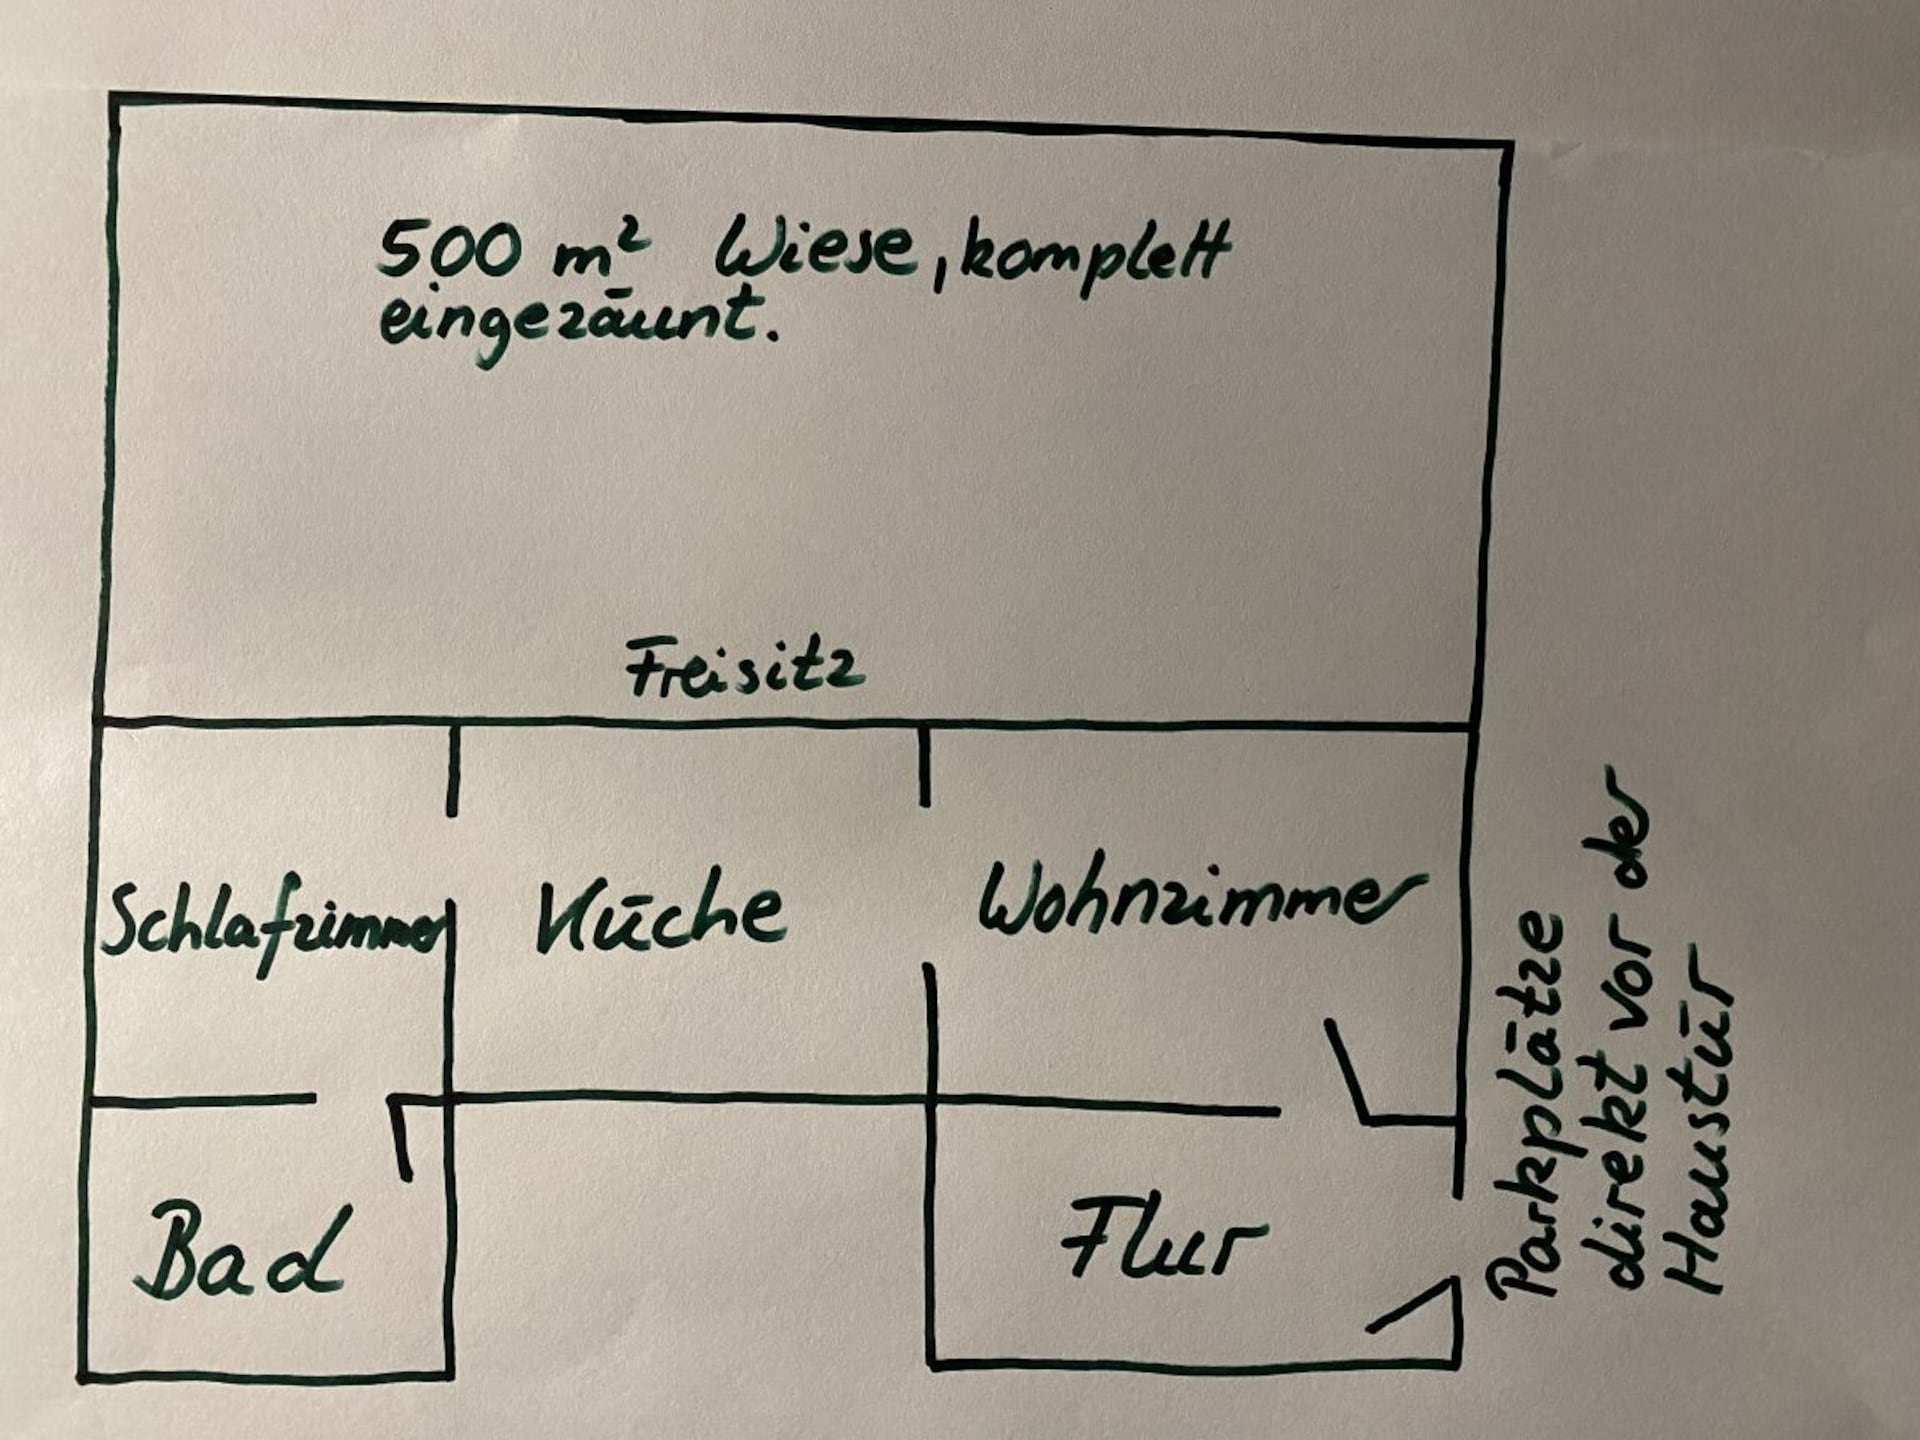 500 m² Wiese, komplett
eingezäunt.
Freisitz
Schlafzimmer
Küche
Wohnzimmer
Bad
Flur
Parkplätze
direkt vor der
Haustür